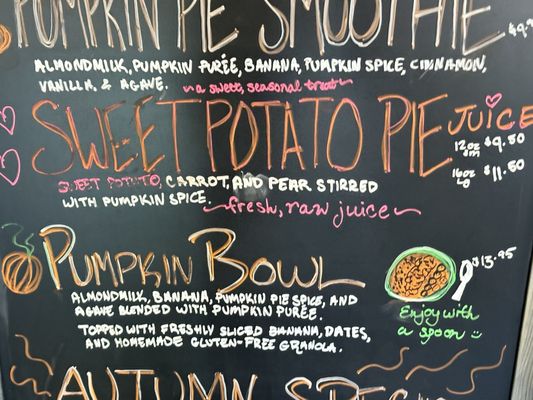 PUMPKIN PIE SMOOTHIE
ALMONDMILK, PUMPKIN PURÉE, BANANA, PUMPKIN SPICE, CINNAMON,
VANILLA, & AGAVE. ~a sweet, seasonal treat~
SWEET POTATO PIE JUICE
12oz sm $9.50
16oz LG $11.50
SWEET POTATO, CARROT, AND PEAR STIRRED
WITH PUMPKIN SPICE. ~fresh, raw juice~
PUMPKIN BOWL
$13.95
ALMONDMILK, BANANA, PUMPKIN PIE SPICE, AND
AGAVE BLENDED WITH PUMPKIN PURÉE.
TOPPED WITH FRESHLY SLICED BANANA, DATES,
AND HOMEMADE GLUTEN-FREE GRANOLA.
Enjoy with
a spoon :)
AUTUMN